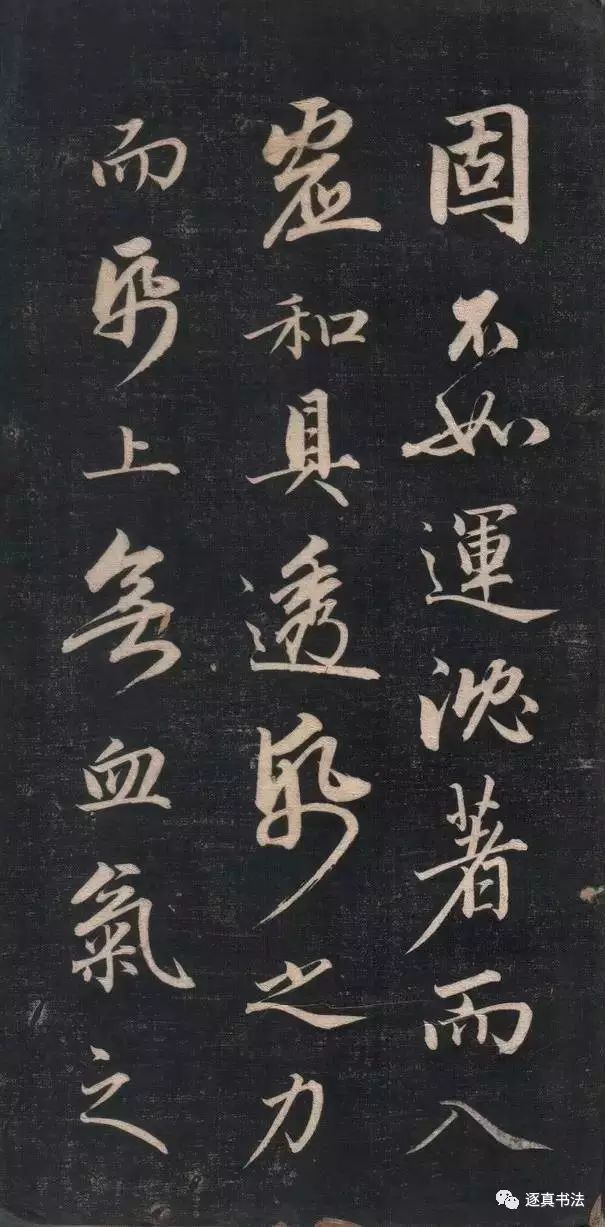 固不如運沈著而入
虛和具透帋之力
而帋上無血氣之
逐真书法